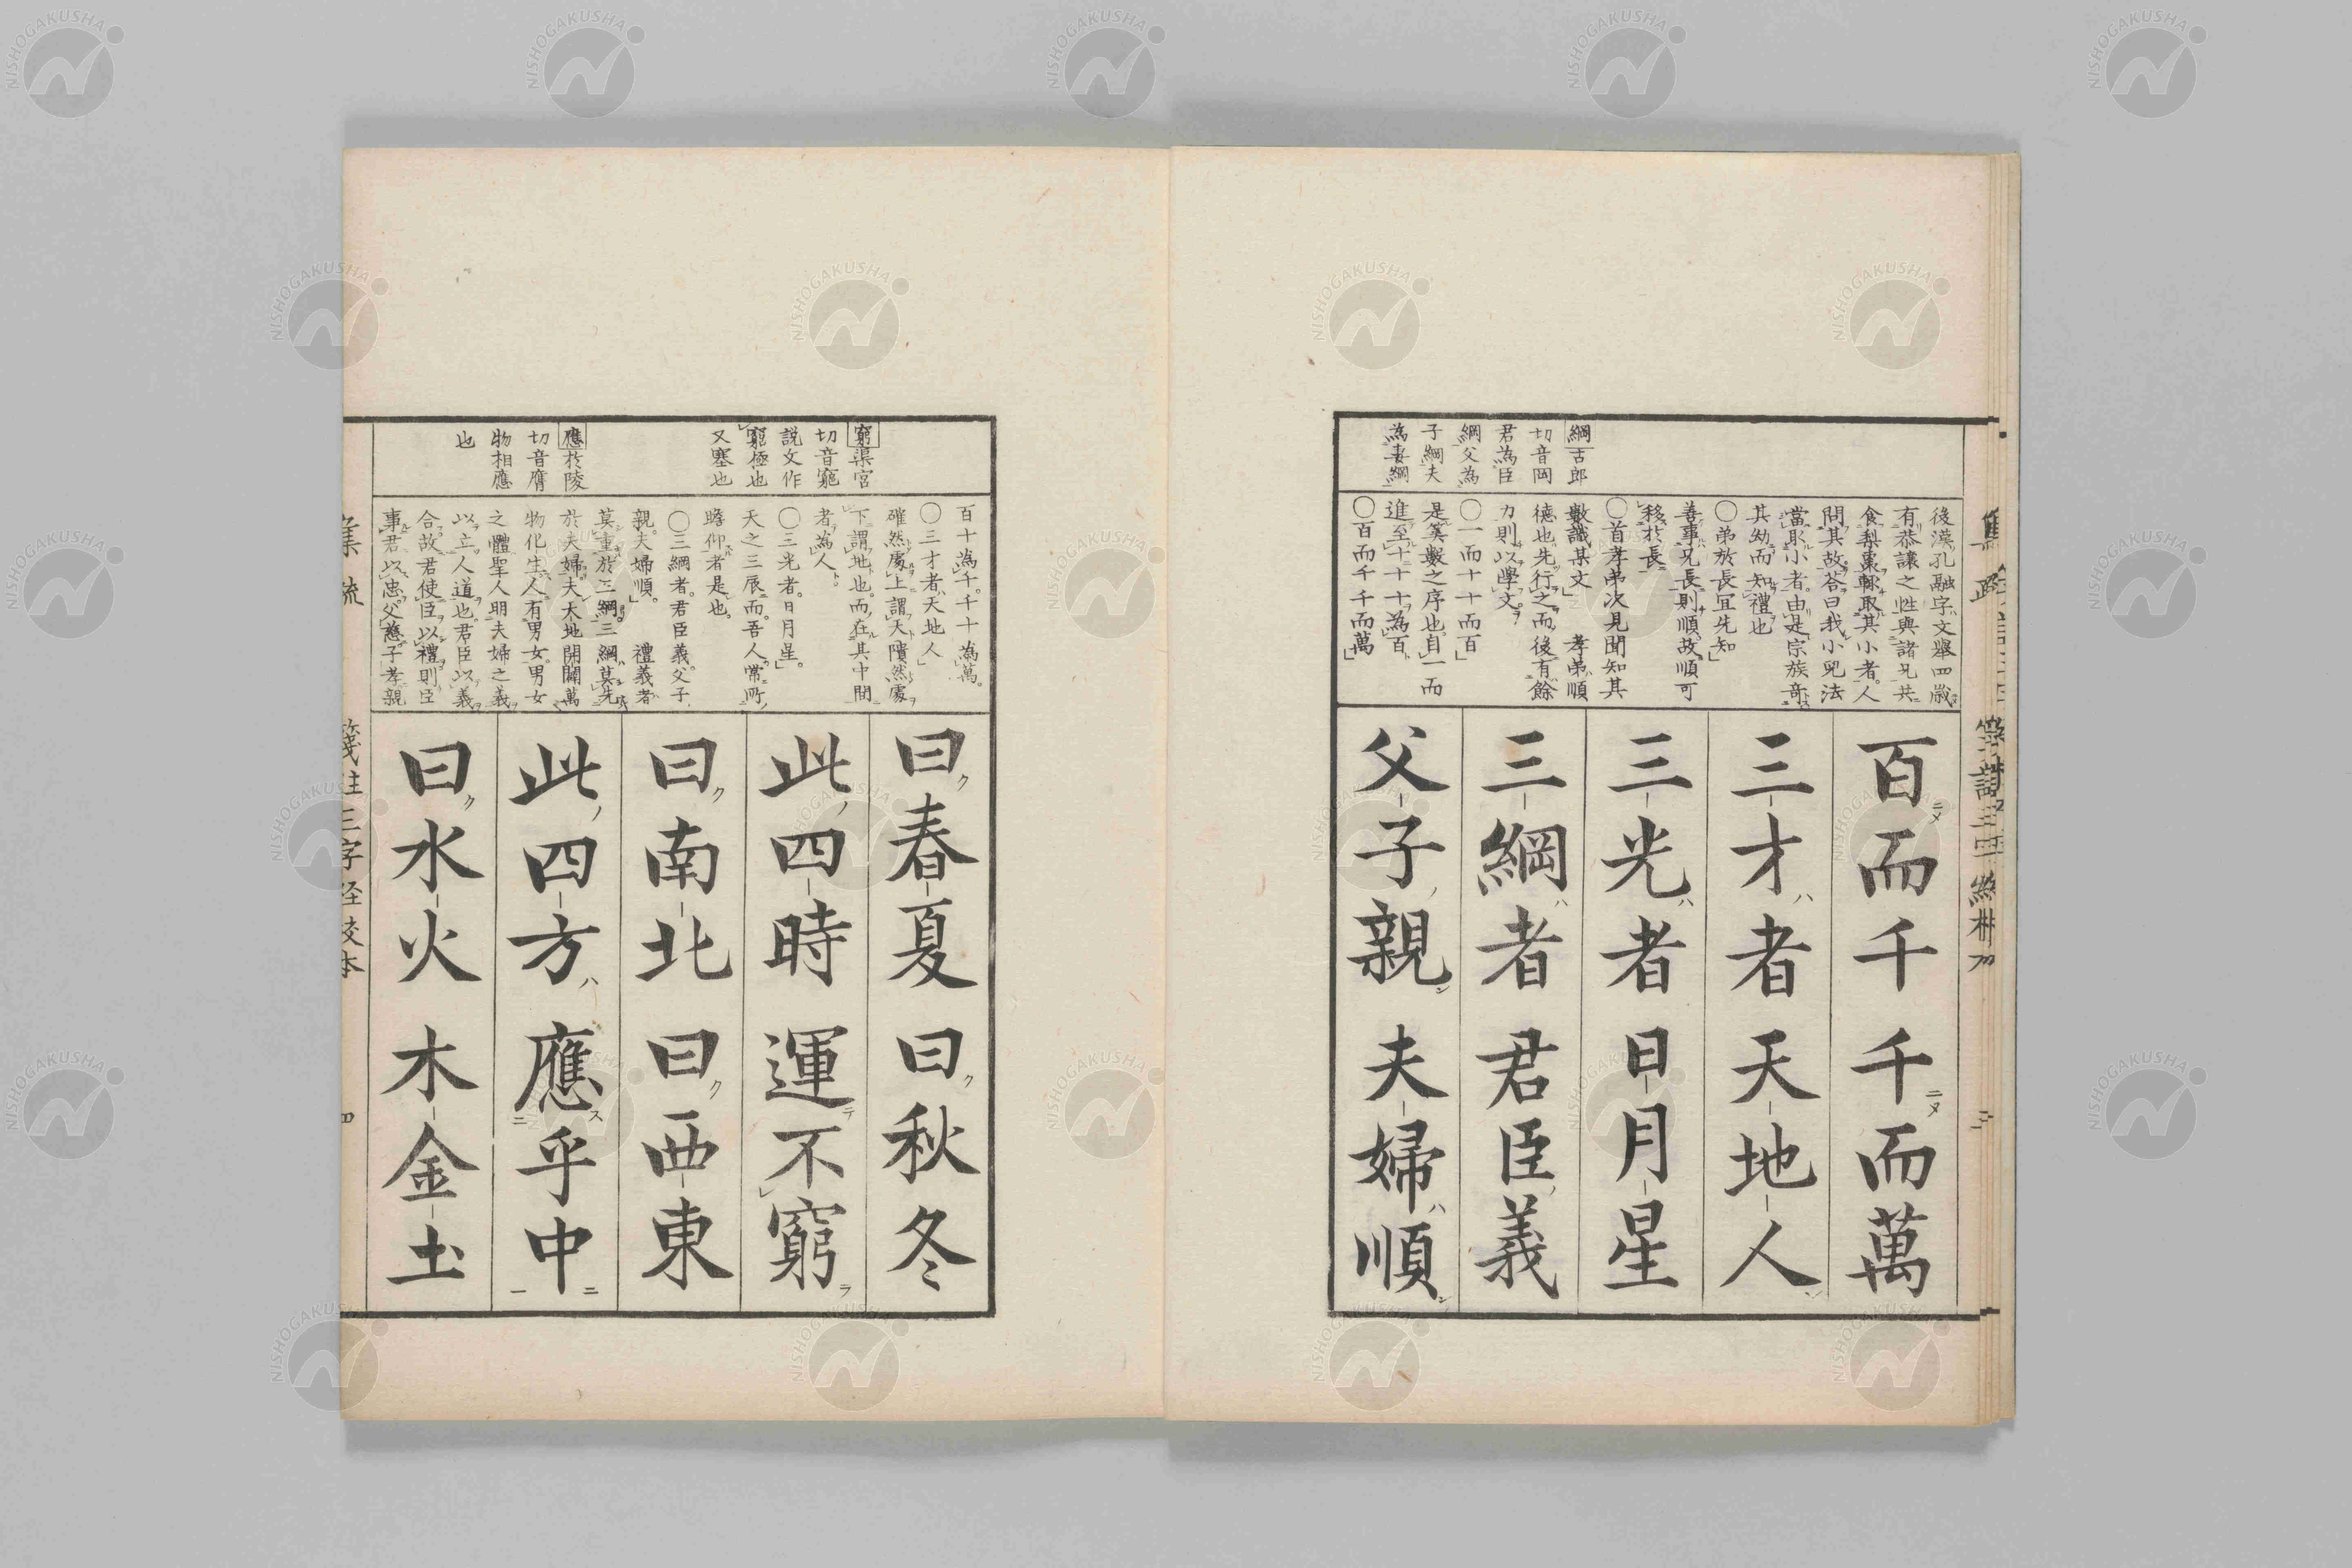 綱古郎
切音岡
君為臣
綱父為
子綱夫
為妻綱
後漢孔融字文舉四歲
有恭讓之性與諸兄共
食梨棗輙取其小者人
問其故答曰我小兒法
當取小者由是宗族奇
其幼而知禮也
〇弟於長宜先知
善事兄長則順故順可
移於長
〇首孝弟次見聞知其
數識某文 孝弟順
德也先行之而後有餘
力則以學文
〇一而十十而百
是筭數之序也自一而
進至十十十為百
〇百而千千而萬
百而千 千而萬
三才者 天地人
三光者 日月星
三綱者 君臣義
父子親 夫婦順
窮渠宮
切音窮
說文作
竆極也
又塞也
應於陵
切音膺
物相應
也
百十為千千十為萬
〇三才者天地人
確然處上謂天隤然處
下謂地也而在其中間
者為人
〇三光者日月星
天之三辰而吾人常所
瞻仰者是也
〇三綱者君臣義父子
親夫婦順 禮義者
莫重於三綱三綱莫先
於夫婦夫天地開闢萬
物化生人有男女男女
之體聖人明夫婦之義
以立人道也君臣以義
合故君使臣以禮則臣
事君以忠父慈子孝親
曰春夏 曰秋冬
此四時 運不窮
曰南北 曰西東
此四方 應乎中
曰水火 木金土
集疏 箋註三字經校本 四